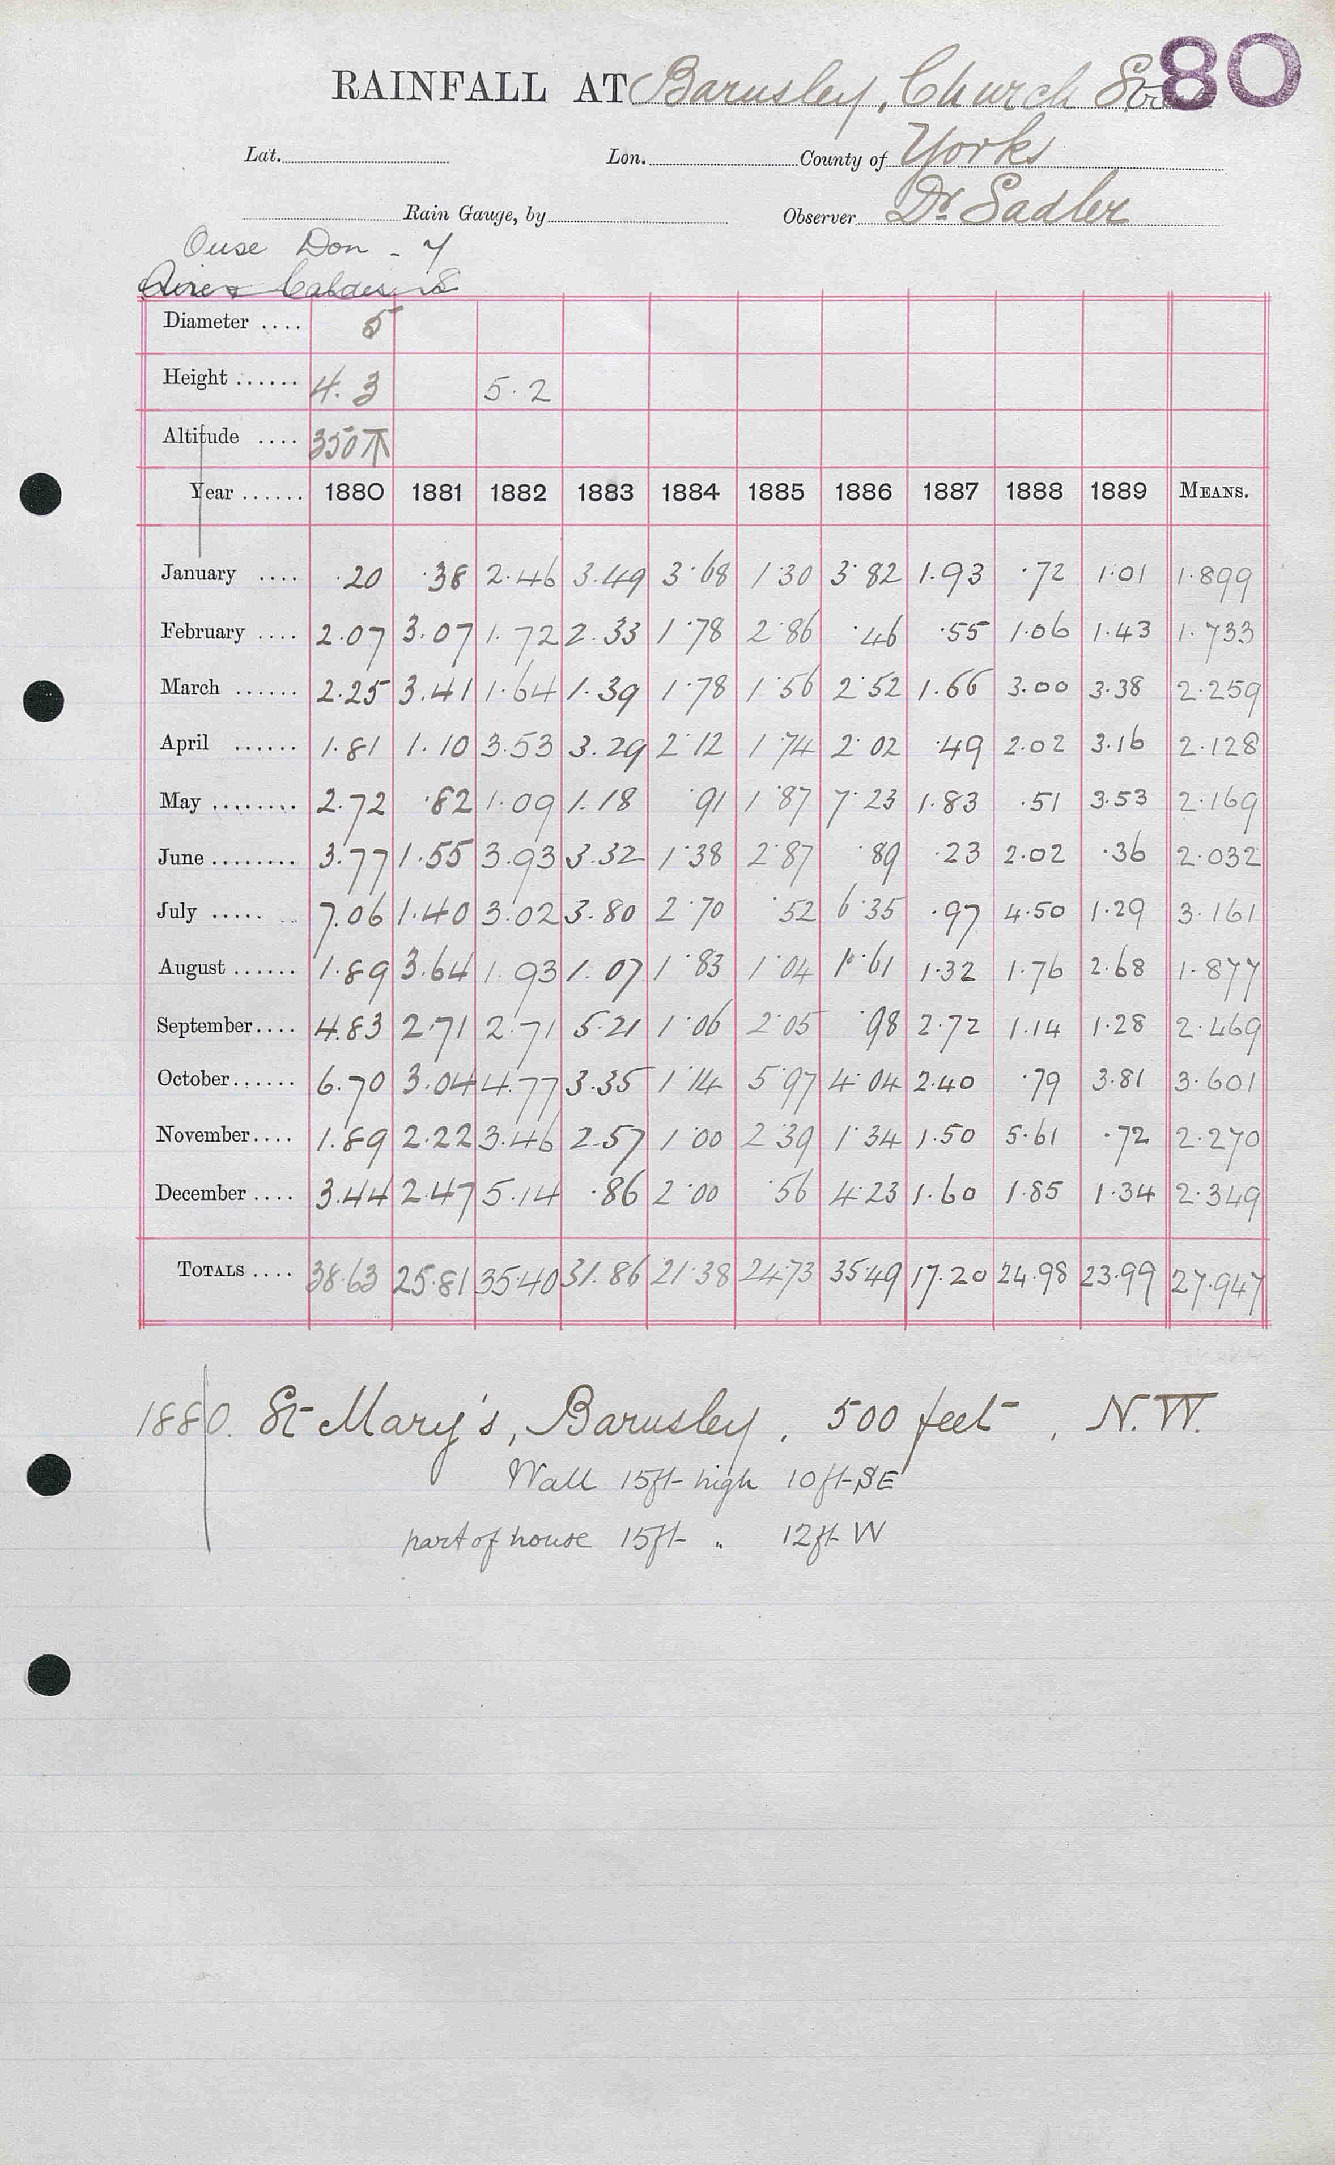 80
RAINFALL AT Barnsley, Church Str
Lat. Lon. County of Yorks
Rain Gauge, by Observer Dr. Sadler
Ouse Don - 7
Aire & Calder 8
Diameter .... 5
Height ...... 4.3 5.2
Altitude .... 350
Year ...... 1880 1881 1882 1883 1884 1885 1886 1887 1888 1889 MEANS.
January .... .20 .38 2.46 3.49 3.68 1.30 3.82 1.93 .72 1.01 1.899
February .... 2.07 3.07 1.72 2.33 1.78 2.86 .46 .55 1.06 1.43 1.733
March ...... 2.25 3.41 1.64 1.39 1.78 1.56 2.52 1.66 3.00 3.38 2.259
April ...... 1.81 1.10 3.53 3.29 2.12 1.74 2.02 .49 2.02 3.16 2.128
May ........ 2.72 .82 1.09 1.18 .91 1.87 7.23 1.83 .51 3.53 2.169
June ........ 3.77 1.55 3.93 3.32 1.38 2.87 .89 .23 2.02 .36 2.032
July ..... 7.06 1.40 3.02 3.80 2.70 .52 6.35 .97 4.50 1.29 3.161
August ...... 1.89 3.64 1.93 1.07 1.83 1.04 1.61 1.32 1.76 2.68 1.877
September .... 4.83 2.71 2.71 5.21 1.06 2.05 .98 2.72 1.14 1.28 2.469
October ...... 6.70 3.04 4.77 3.35 1.14 5.97 4.04 2.40 .79 3.81 3.601
November .... 1.89 2.22 3.46 2.57 1.00 2.39 1.34 1.50 5.61 .72 2.270
December .... 3.44 2.47 5.14 .86 2.00 .56 4.23 1.60 1.85 1.34 2.349
TOTALS .... 38.63 25.81 35.40 31.86 21.38 24.73 35.49 17.20 24.98 23.99 27.947
1880. St Mary's, Barnsley, 500 feet, N.W.
Wall 15ft high 10ft SE
part of house 15ft " 12ft W